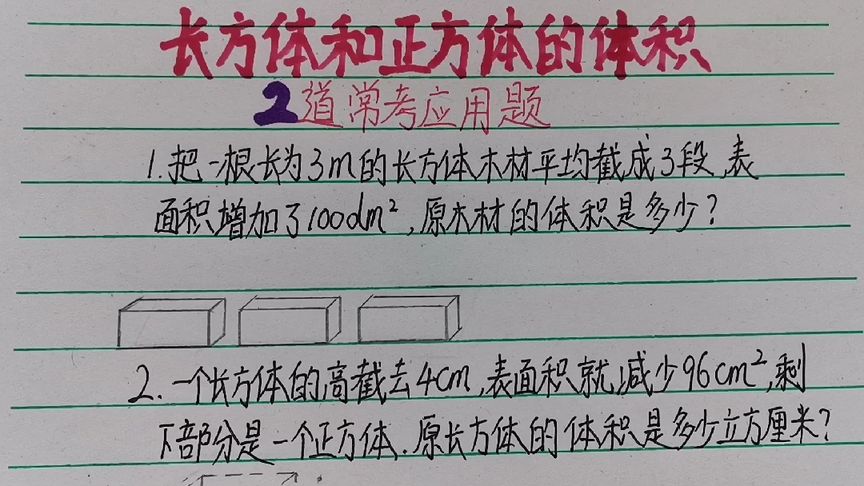 长方体和正方体的体积
2道常考应用题
1.把一根长为3m的长方体木材平均截成3段,表
面积增加了100dm²,原木材的体积是多少?
2.一个长方体的高截去4cm,表面积就减少96cm²,剩
下部分是一个正方体.原长方体的体积是多少立方厘米?